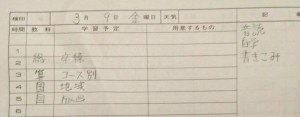 検印 3月9日金曜日 天気 記
時間 教科 学習予定 用意するもの
1
2 総 卒練
3 算 コース別
4 国 地域
5 国
6
音読
自学
書きこみ